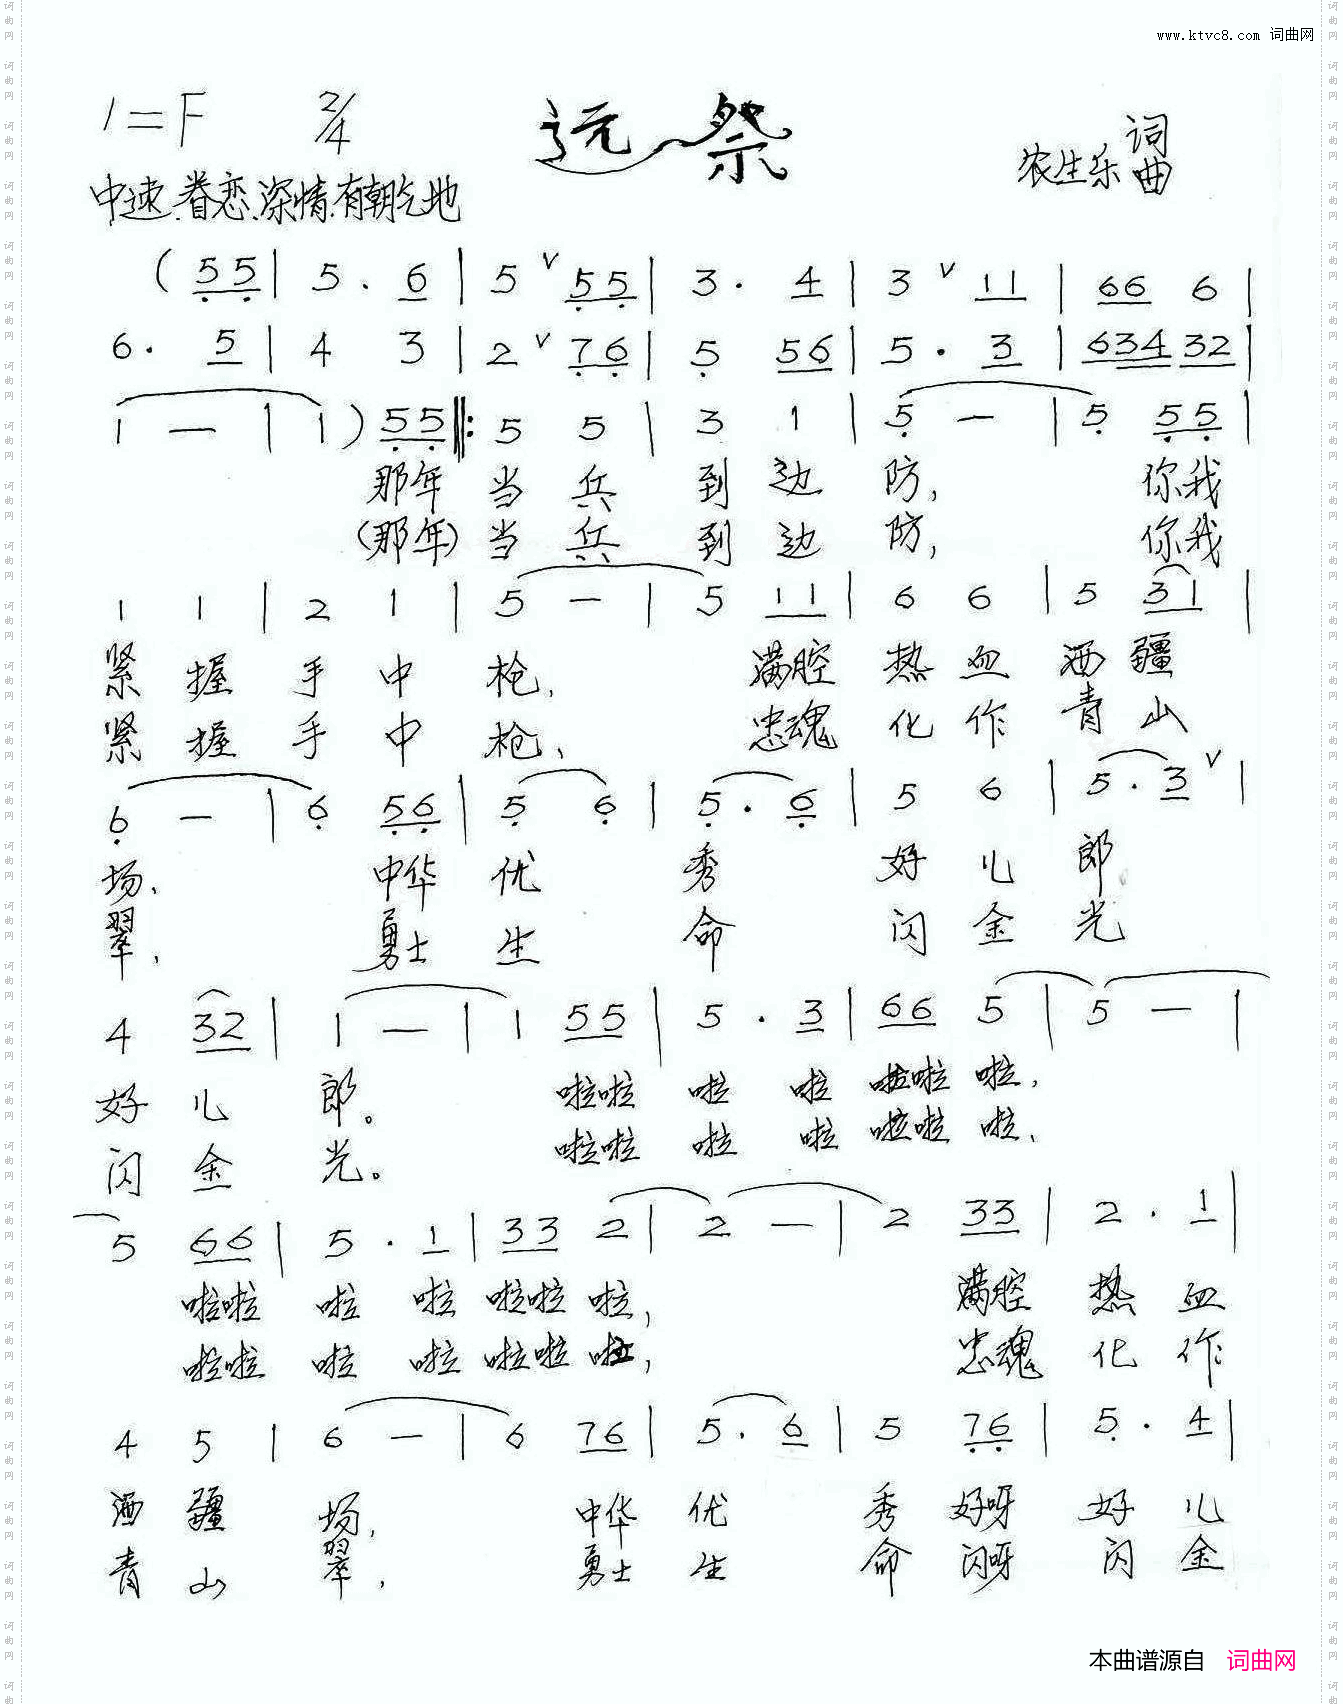 www.ktvc8.com 词曲网
1=F 2/4 远祭 农生乐 词曲
中速、眷恋、深情、有朝气地
( 5 5 | 5 . 6 | 5 V 5 5 | 3 . 4 | 3 V 1 1 | 6 6 6 |
6 . 5 | 4 3 | 2 V 7 6 | 5 5 6 | 5 . 3 | 6 3 4 3 2 |
1 — | 1 ) 5 5 ‖: 5 5 | 3 1 | 5 — | 5 5 5 |
那年 当 兵 到 边 防, 你我
(那年) 当 兵 到 边 防, 你我
1 1 | 2 1 | 5 — | 5 1 1 | 6 6 | 5 3 1 |
紧 握 手 中 枪, 满腔 热 血 洒 疆
紧 握 手 中 枪, 忠魂 化 作 青 山
6 — | 6 5 6 | 5 6 | 5 . 6 | 5 6 | 5 . 3 V |
场, 中华 优 秀 好 儿 郎
翠, 勇士 生 命 闪 金 光
4 3 2 | 1 — | 1 5 5 | 5 . 3 | 6 6 5 | 5 — |
好 儿 郎。 啦啦 啦 啦 啦啦 啦,
闪 金 光。 啦啦 啦 啦 啦啦 啦,
5 6 6 | 5 . 1 | 3 3 2 | 2 — | 2 3 3 | 2 . 1 |
啦啦 啦 啦 啦啦 啦, 满腔 热 血
啦啦 啦 啦 啦啦 啦, 忠魂 化 作
4 5 | 6 — | 6 7 6 | 5 . 6 | 5 7 6 | 5 . 4 |
洒 疆 场, 中华 优 秀 好呀 好 儿
青 山 翠, 勇士 生 命 闪呀 闪 金
本曲谱源自 词曲网